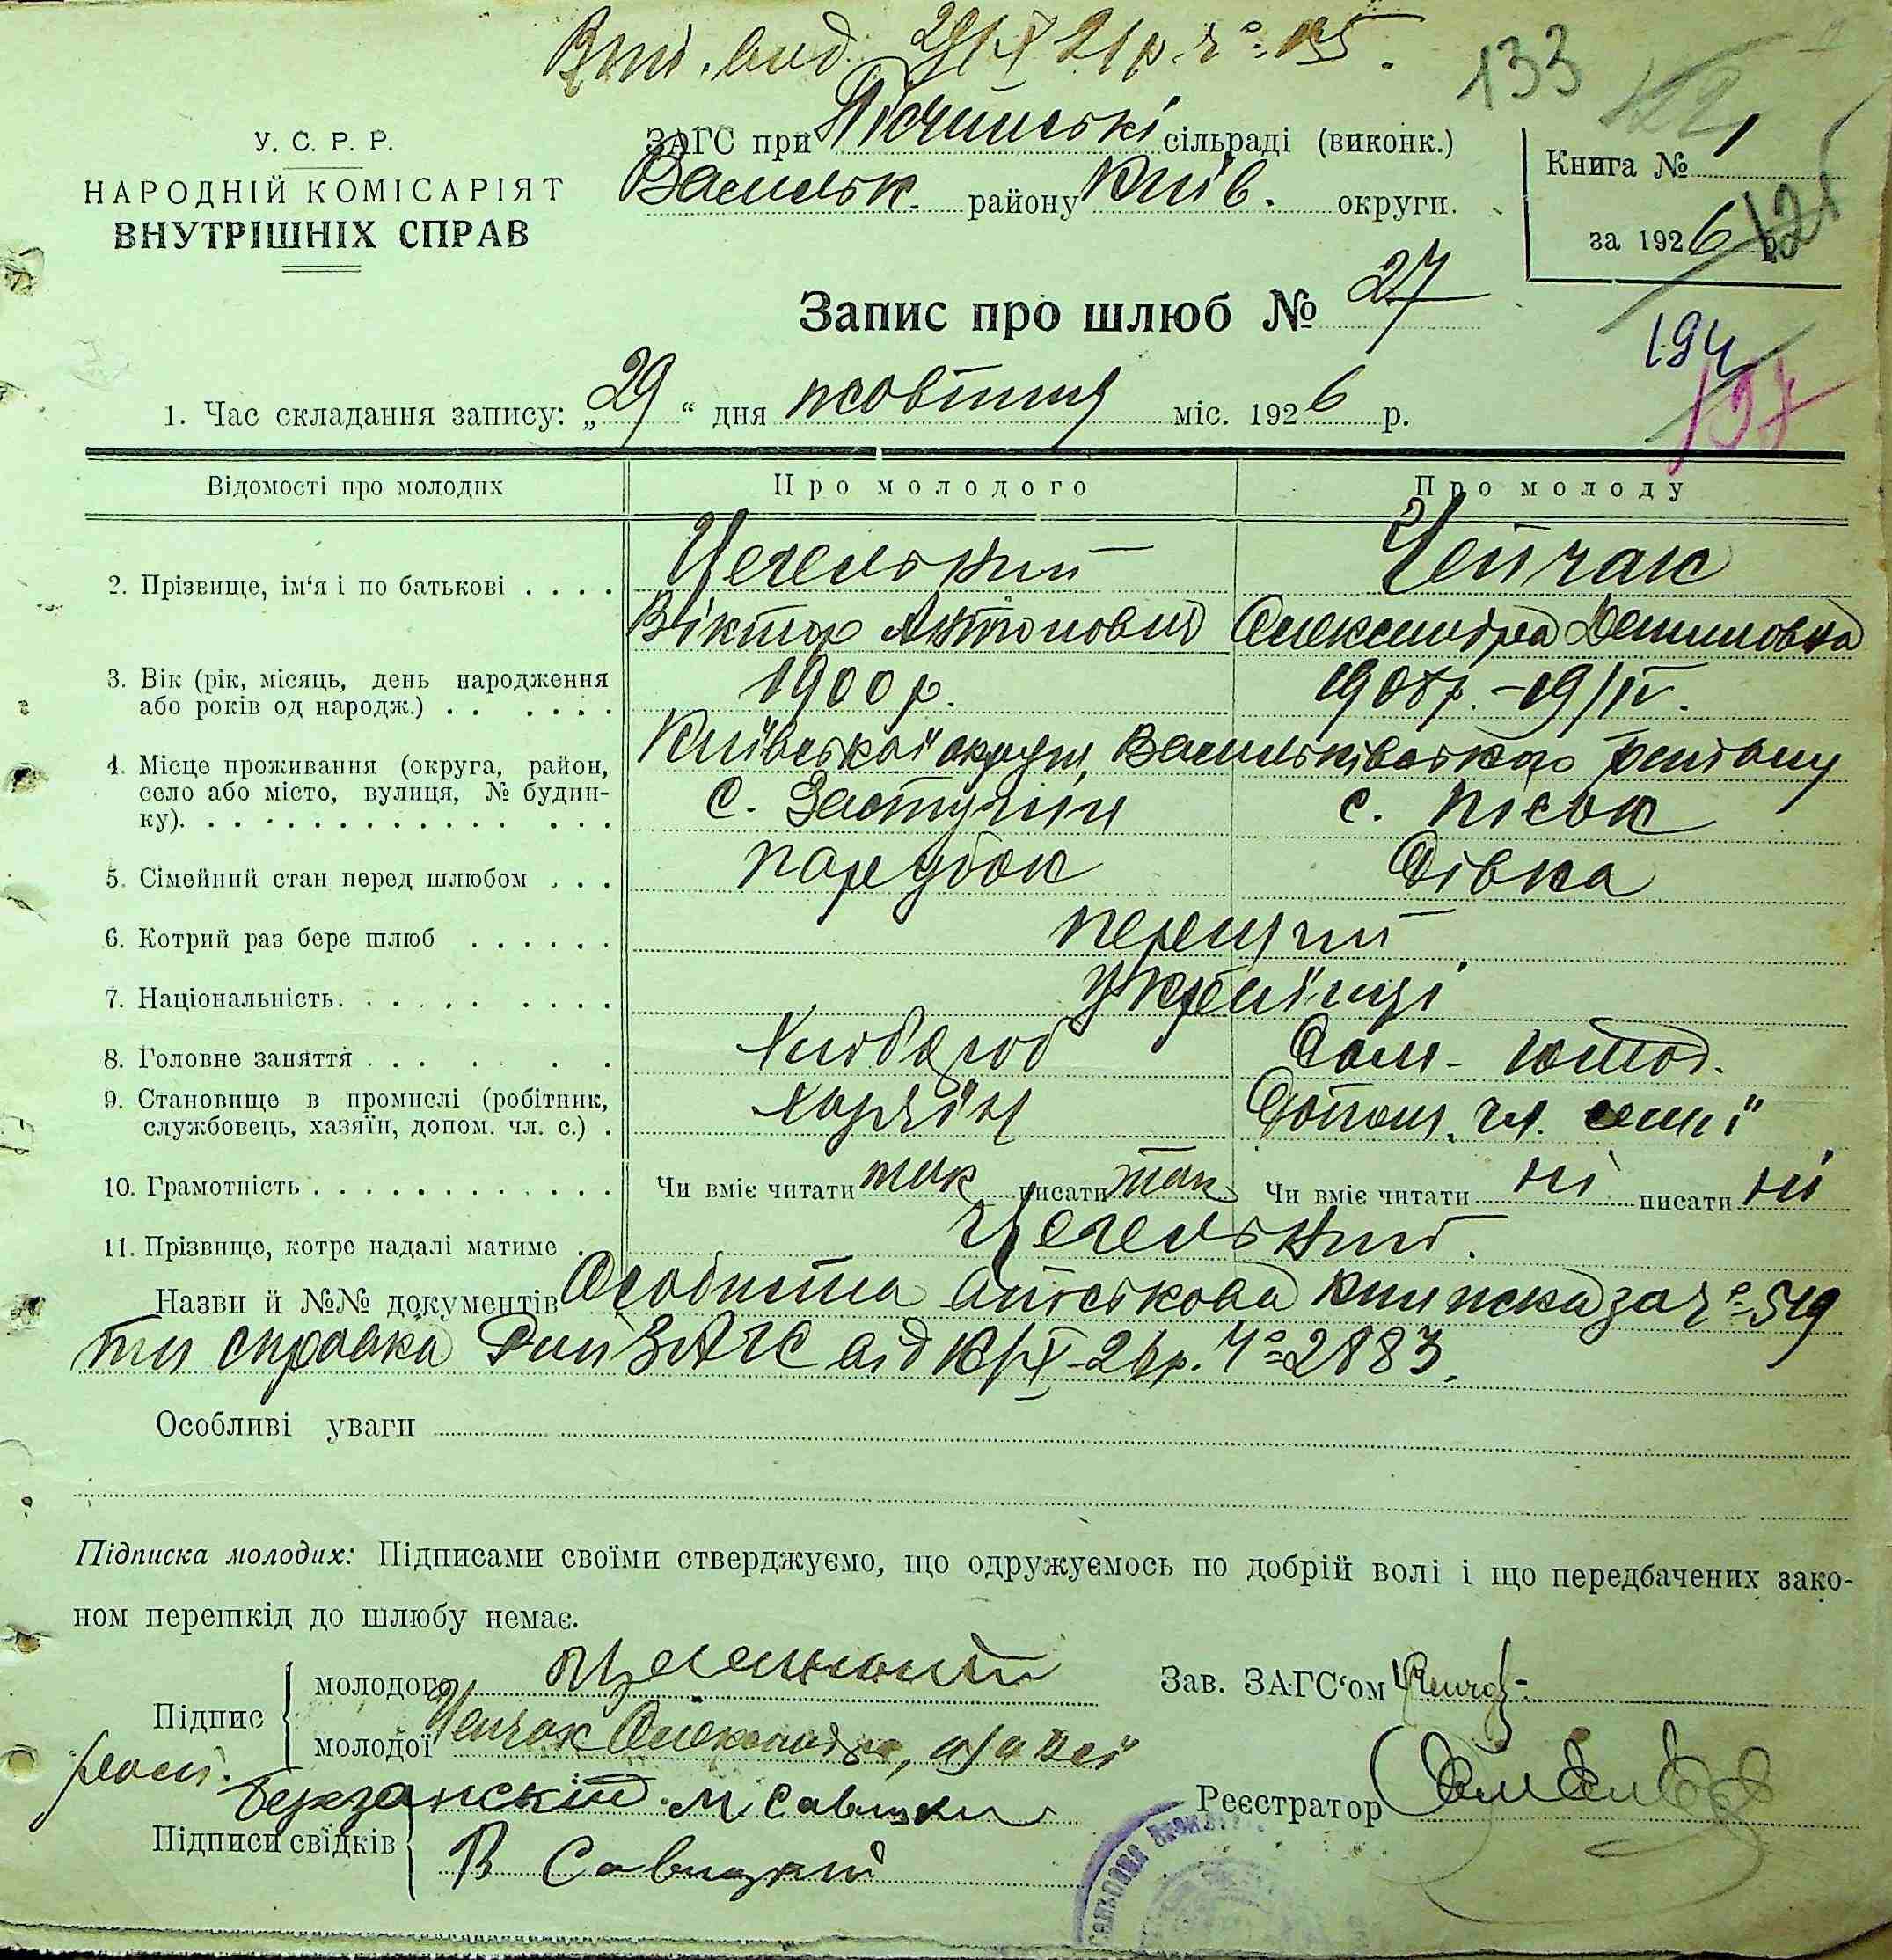 133
У. С. Р. Р.
НАРОДНІЙ КОМІСАРІЯТ
ВНУТРІШНІХ СПРАВ
ЗАГС при сільраді (виконк.)
Васильк. району Київ. округи.
Книга № 1
за 1926 р.
121
Запис про шлюб № 27
194
1. Час складання запису: „29“ дня жовтня міс. 1926 р.
Відомості про молодих Про молодого Про молоду
2. Прізвище, ім‘я і по батькові . . . . Цегельський Чепчак
Віктор Антонович Олександра Демидовна
3. Вік (рік, місяць, день народження
або років од народж.) . . . . . . 1900 р. 1908 р. - 19/IV.
Київської округи, Васильківського району
4. Місце проживання (округа, район,
село або місто, вулиця, № будин-
ку). с. Застугня с. Пісок
5. Сімейний стан перед шлюбом . . . парубок дівка
6. Котрий раз бере шлюб . . . . . . перший
7. Національність. українці
8. Головне заняття Хлібороб Дом-
9. Становище в промислі (робітник,
службовець, хазяїн, допом. чл. с.) . хазяїн Допом. чл. сем'ї
10. Грамотність Чи вміє читати так писати так Чи вміє читати ні писати ні
11. Прізвище, котре надалі матиме . Цегельський.
Назви й №№ документів Особиста військова книжка за № 519
та справка ЗАГС від 2883.
Особливі уваги
Підписка молодих: Підписами своїми стверджуємо, що одружуємось по добрій волі і що передбачених зако-
ном перешкід до шлюбу немає.
Підпис
молодого
молодої Чепчак Олександра, а за неї
Зав. ЗАГС‘ом
розп. Березанский. М. Савицки
Реєстратор
Підписи свідків В Савицкий